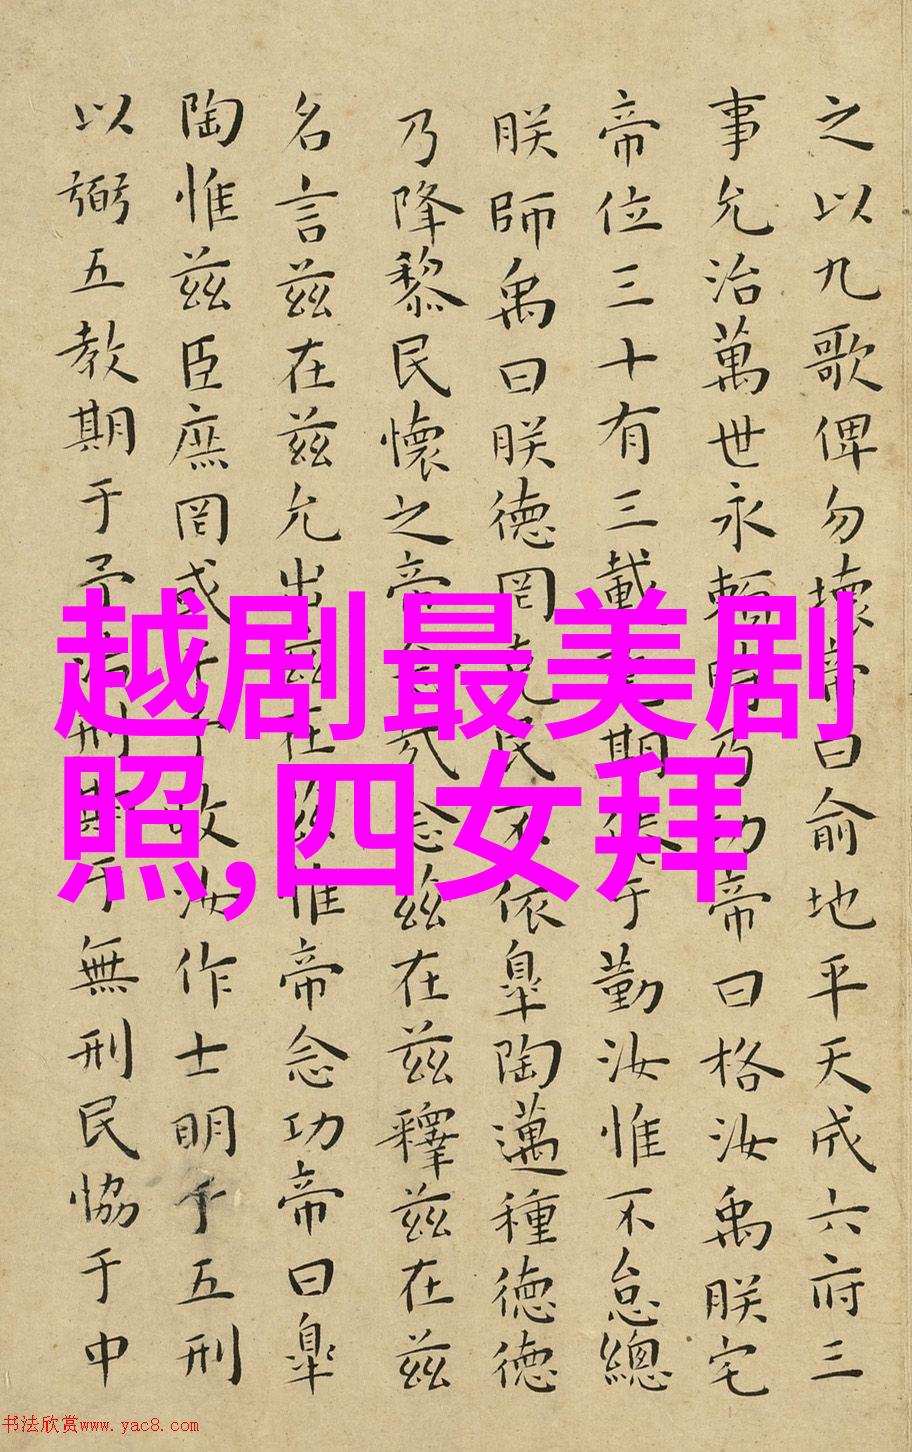 之以九歌俾勿壞帝曰俞地平天成六府三
事允治萬世永賴時乃功帝曰格汝禹朕宅
帝位三十有三載耄期倦于勤汝惟不怠總
朕師禹曰朕德罔克民不依皐陶邁種德德
乃降黎民懷之帝念哉念茲在茲釋茲在茲
名言茲在茲允出茲在茲惟帝念功帝曰皐
陶惟茲臣庶罔或干予政汝作士明于五刑
以弼五教期于予治刑期于無刑民恊于中
越剧最美剧
照,四女拜
书法欣赏www.yac8.com